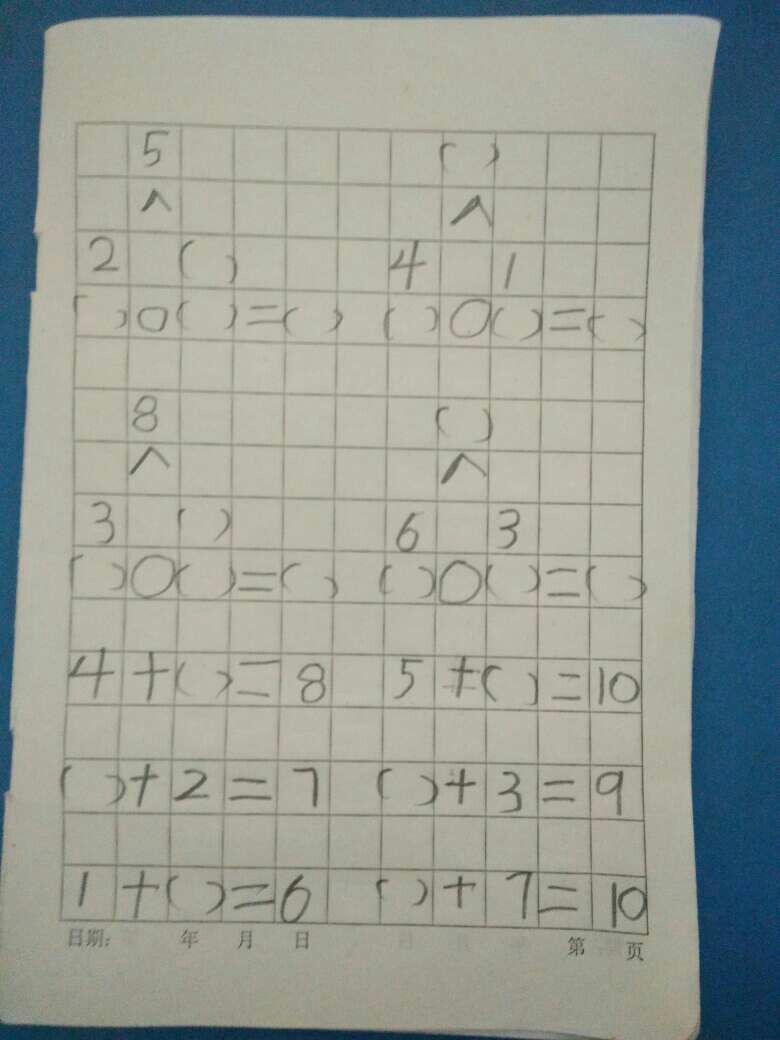 5 ( )
∧ ∧
2 ( ) 4 1
( )○( )=( ) ( )○( )=( )
8 ( )
∧ ∧
3 ( ) 6 3
( )○( )=( ) ( )○( )=( )
4+( )=8 5+( )=10
( )+2=7 ( )+3=9
1+( )=6 ( )+7=10
日期: 年 月 日 第 页